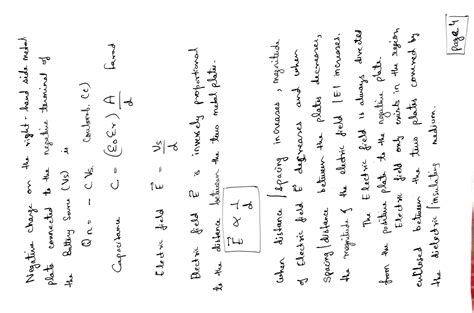 Negative charge on the right-hand side metal
plate connected to the negative terminal of
the Battery Source (Vs) is
Qn = - C Vs Coulomb (C)
Capacitance C = (ε0 εr) A/d Farad
Electric field E⃗ = Vs/d
Electric field E⃗ is inversely proportional
to the distance between the two metal plates.
E⃗ ∝ 1/d
when distance / spacing increases, magnitude
of Electric field E⃗ decreases and when
spacing / distance between the plates decreases,
the magnitude of the electric field |E| increases.
The Electric field is always directed
from the positive plate to the negative plate
Electric field only exists in the region
enclosed between the two plates covered by
the dielectric / insulating medium.
Page 4